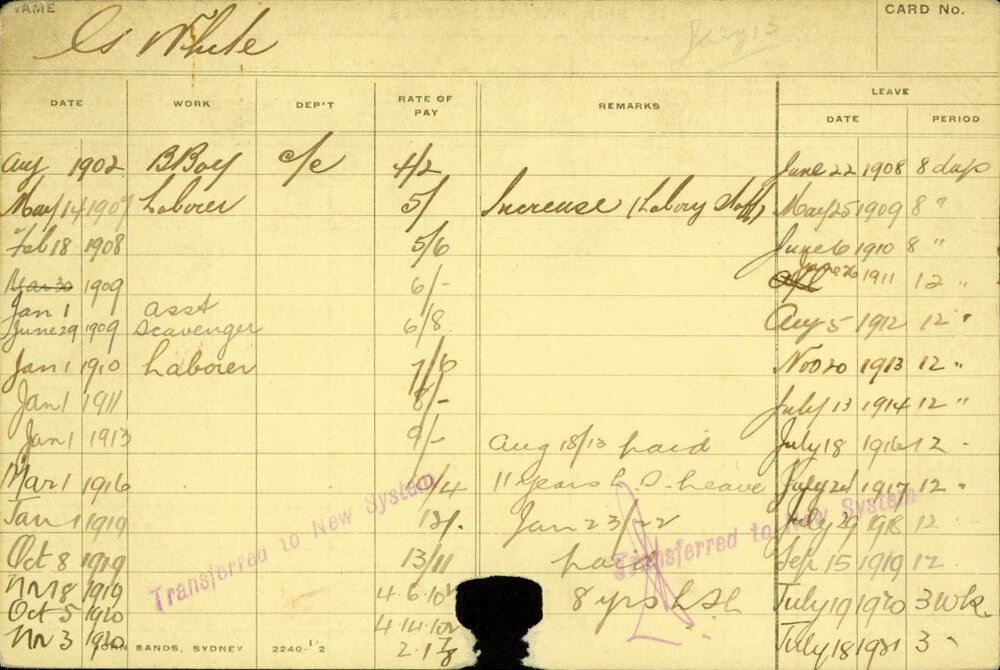 NAME G White CARD No.
DATE WORK DEP'T RATE OF PAY REMARKS LEAVE
DATE PERIOD
Aug 1902 B Boy c/e 4/2 June 22 1908 8 days
May 14 1907 Laborer 5/ Increase May 25 1909 8 "
Feb 18 1908 5/6 June 6 1910 8 "
Mar 30 1909 6/- June 26 1911 12 "
Jan 1 asst
June 29 1909 Scavenger 6/8 Aug 5 1912 12 "
Jan 1 1910 Laborer 7/6 Nov 20 1913 12 "
Jan 1 1911 8/- July 13 1914 12 "
Jan 1 1913 9/- Aug 18/13 paid July 18 1916 12 "
Mar 1 1916 10/4 11 years L. S. Leave July 21 1917 12 "
Jan 1 1919 12/. Jan 23/22 July 29 1918 12
Oct 8 1919 13/11 paid Sep 15 1919 12
Nov 18 1919 4.6.10 8 yrs L S L July 19 1920 3 wk.
Oct 5 1920 4.14.10
Nov 3 1920 July 18 1921 3 "
Transferred to New System
Transferred to New System
JOHN SANDS, SYDNEY 2240-12